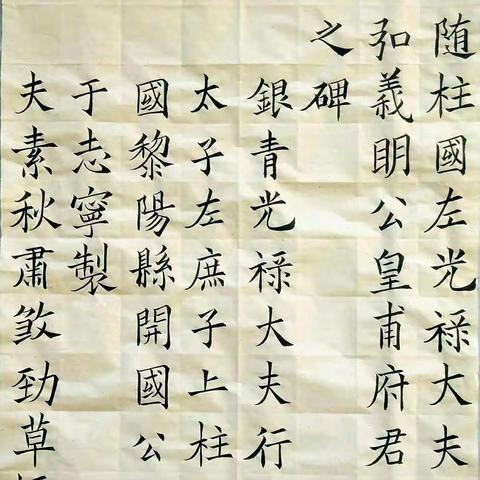 随柱國左光禄大夫
弘義眀公皇甫府君
之碑
銀青光禄大夫行
太子左庶子上柱
國黎陽縣開國公
于志寧製
夫素秋肅煞勁草